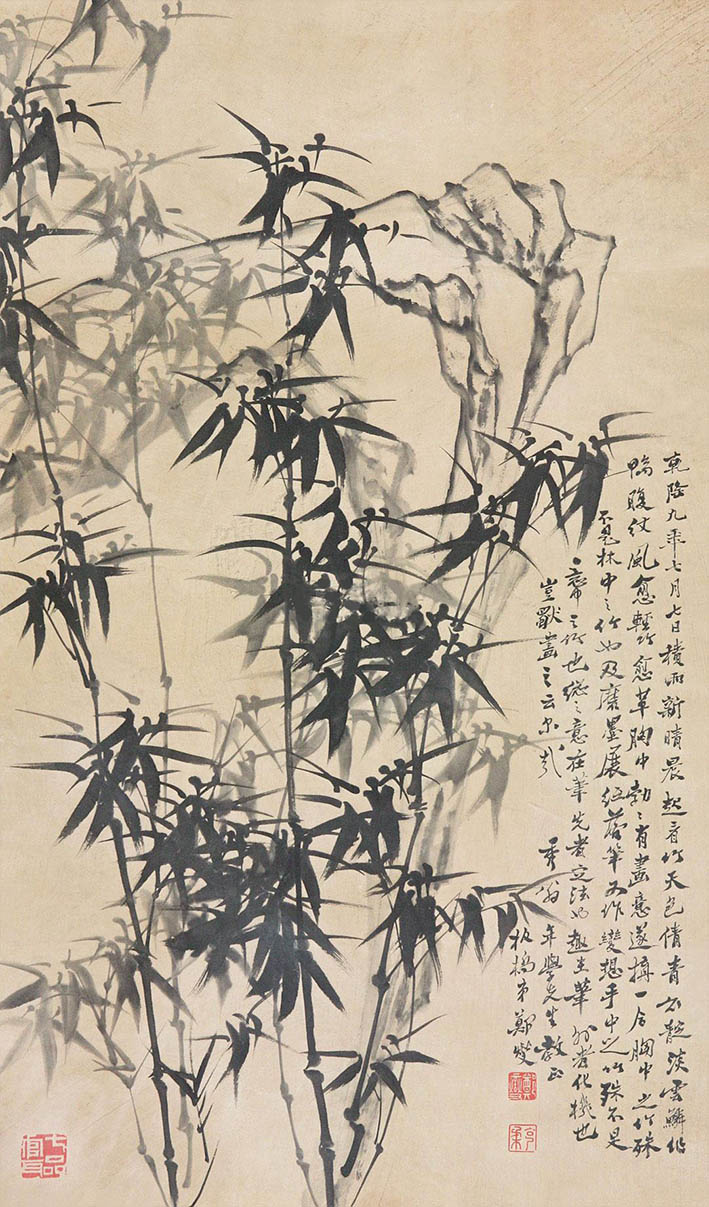 乾隆九年七月七日積雨新晴晨起看竹天色倩青如靛淡雲鱗作
鴨腹紋風愈輕竹愈草胸中勃〻有畫意遂搆一局胸中之竹殊
不是林中之竹也及磨墨展紙落筆又作變想手中之竹殊不是
之竹也總之意在筆先者定法也趣在筆外者化機也
豈獨畫之云尔哉
秀翁年學先生教正
板橋弟鄭燮
七品官耳